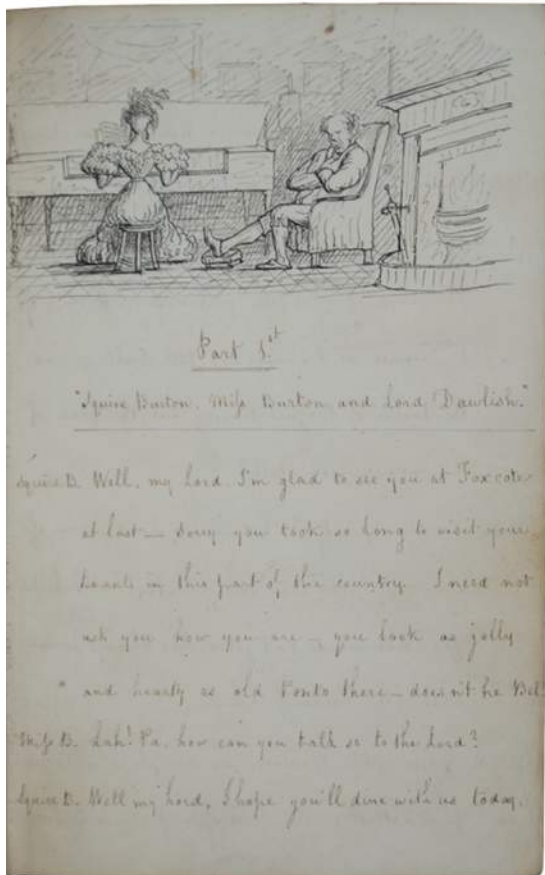 Part 1.st
"Squire Burton, Miss Burton and Lord Dawlish."
Squire B. Well, my lord I'm glad to see you at Foxcote
at last — sorry you took so long to visit your
haunts in this part of the country. I need not
ask you how you are — you look as jolly
and hearty as old Ponto there — doesn't he Bel?
Miss B. Lah! Pa, how can you talk so to the Lord?
Squire B. Well my Lord, I hope you'll dine with us today.